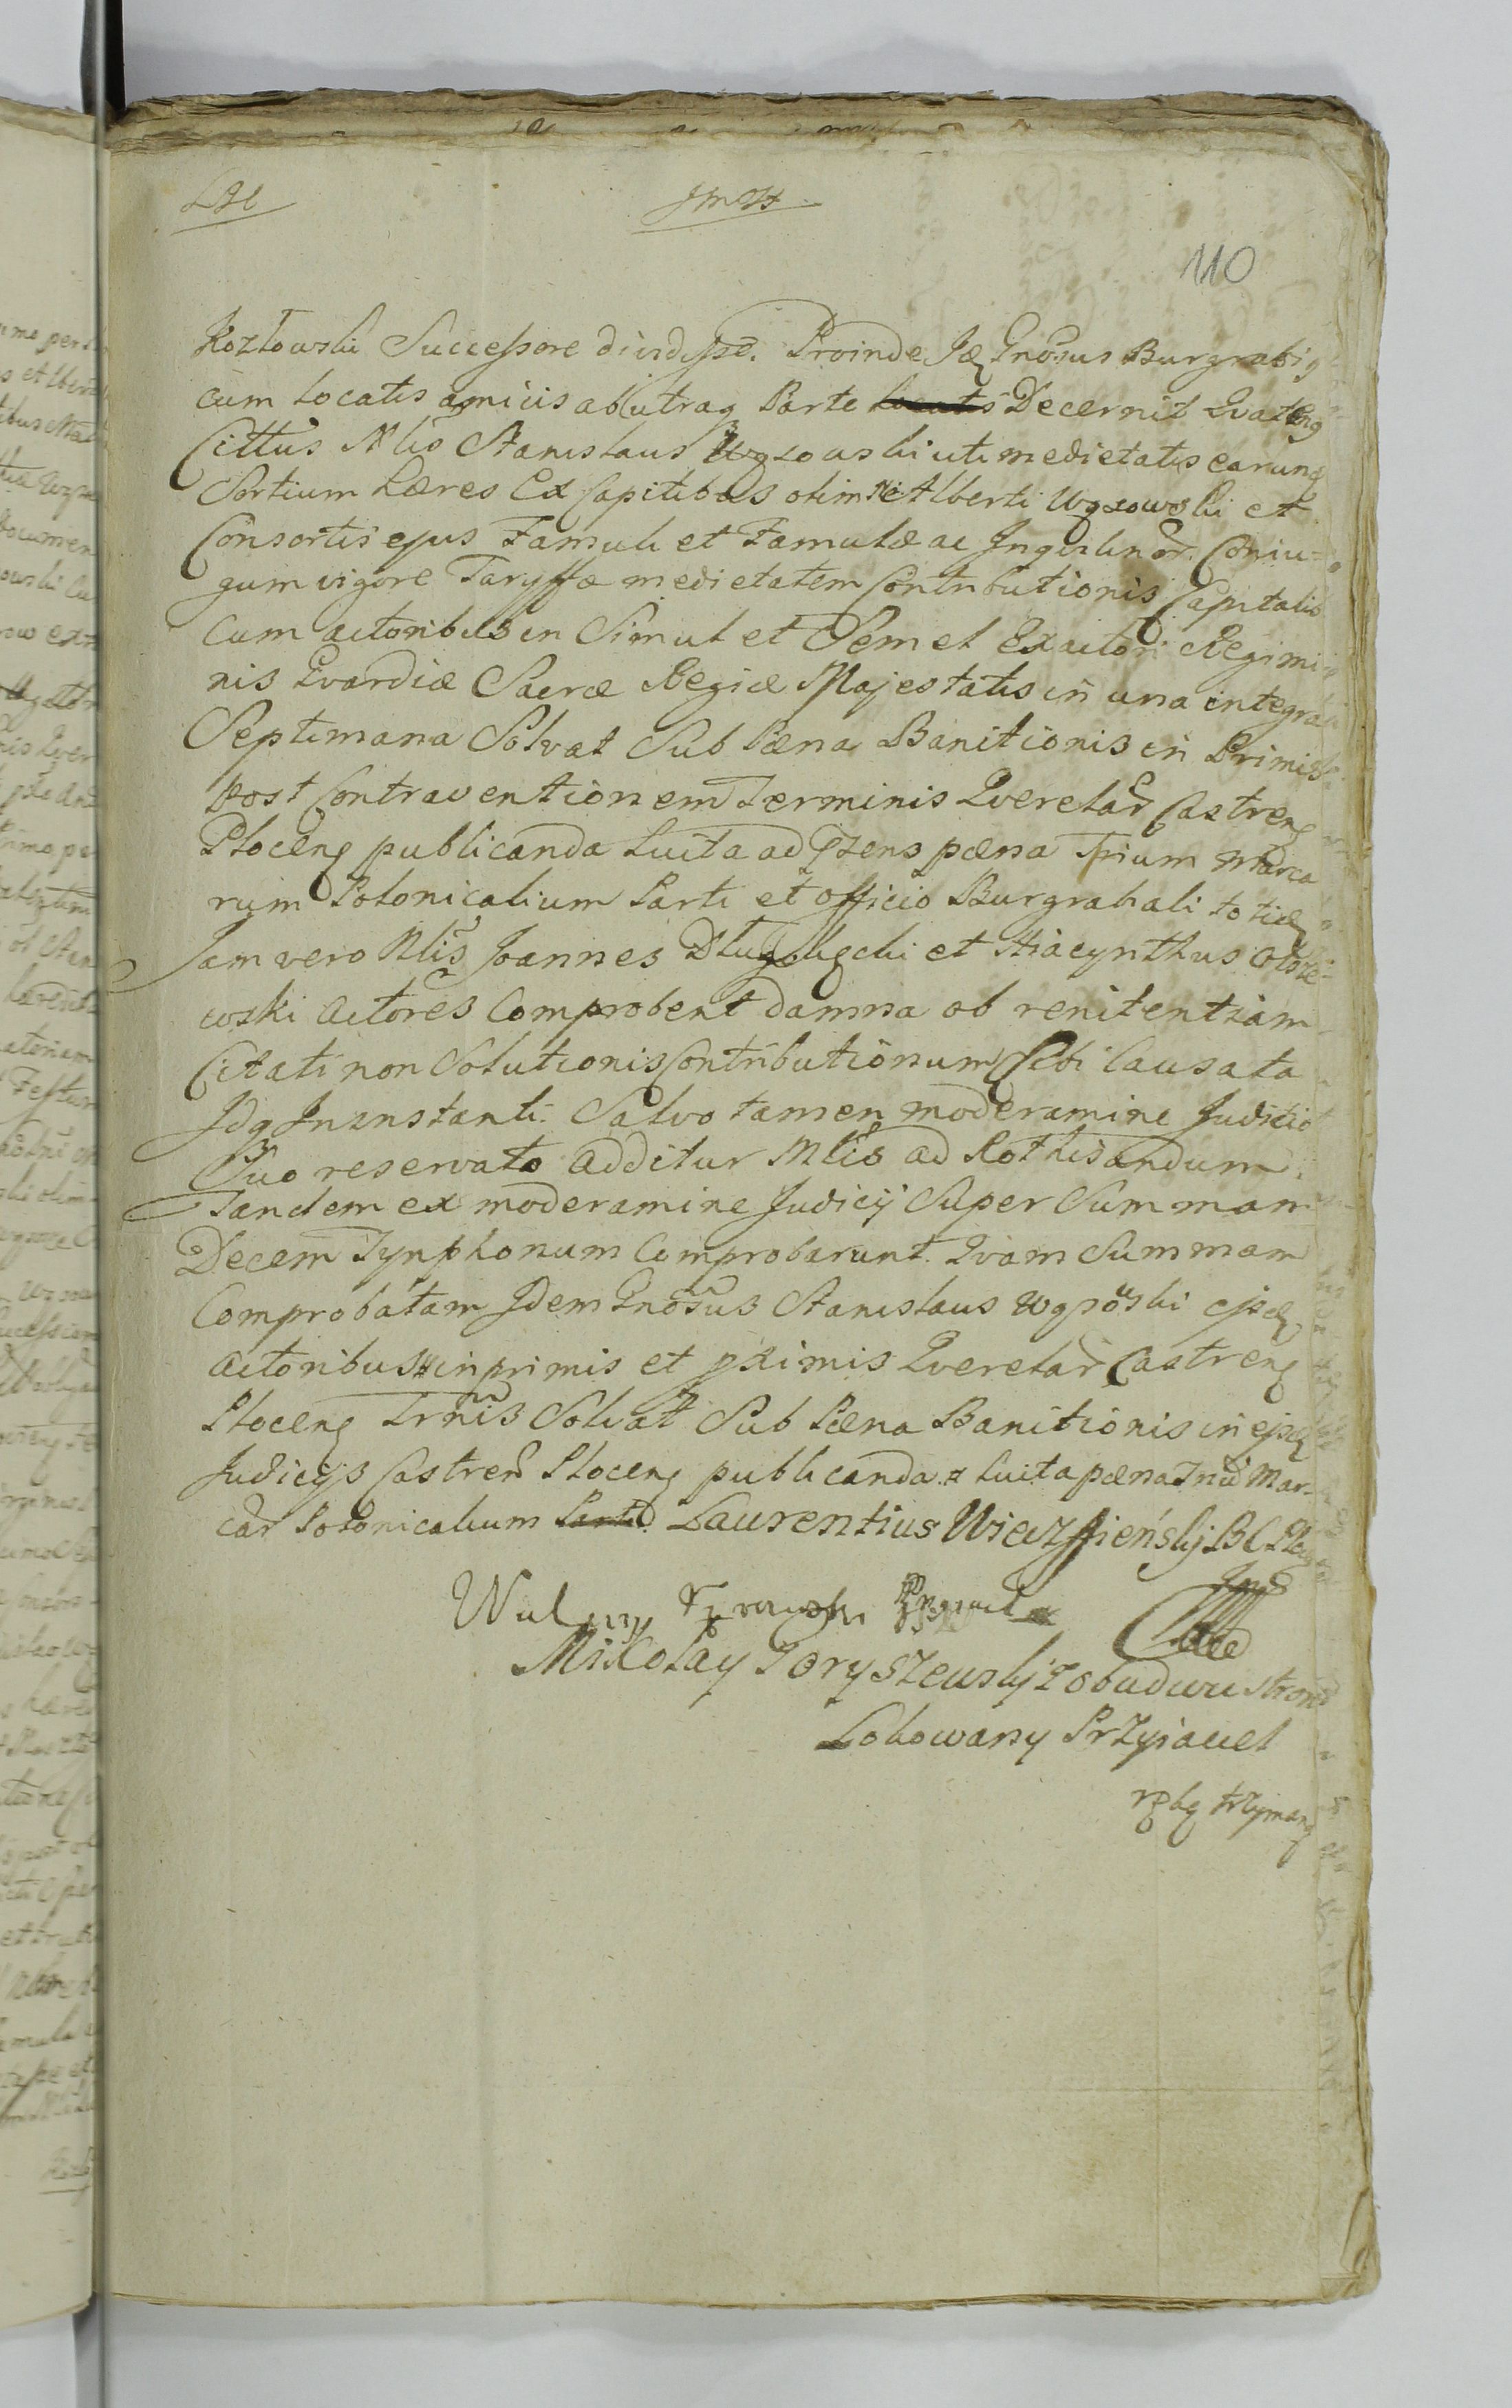 110
Kozłowski Successore divisisse. Proinde Idq Gnosus Burgrabig
cum locatis amicis ab utraq Parte Decernit Quateng
Cittus Nlis Stanislaus Wąsowski uti medietatis earunq
Sortium hæres Ex Capitibus olim Alberti Wąsowski et
Consortis ejus Famuli et Famulæ ac Inqvilinor. Coniu-
gum vigore Taryffæ medietatem Contributionis Capitalis
Cum actoribus in Simul et Semel Exactori Regimi
nis Gvardiæ Sacræ Regiæ Majestatis in una integra
Septimana Solvat Sub Pæna Banitionis in Primis
post Contraventionem Terminis Qverelar Castreng
Ploceng publicanda Luita ad pzens pæna Trium Marca
rum Polonicalium Parti et Officio Burgrabali totidq
Jam vero Nlis Joannes et Hiacynthus
wski Actores Comprobent damna ob renitentiam
Citati non Solutionis Contributionum Sibi Causata
Idq In instanti. Salvo tamen moderamine Judicio
Quo reservato additur Mlis ad Rothisandum.
Tandem ex moderamine Judicij Super Summam
Decem Tynphonum Comprobarunt. Qvam Summam
Comprobatam Idem Gnosus Stanislaus ejsdq
Actoribus in primis et pximis Qverelar Castreng
Ploceng Trnis Solvat Sub Pæna Banitionis in ejsdq
Judicijs Castren Ploceng publicanda Luita pæna Mar-
car Polonicalium Laurentius BC
Mikołay z obudwu stron
Lokowany Przyiaciel
rękq